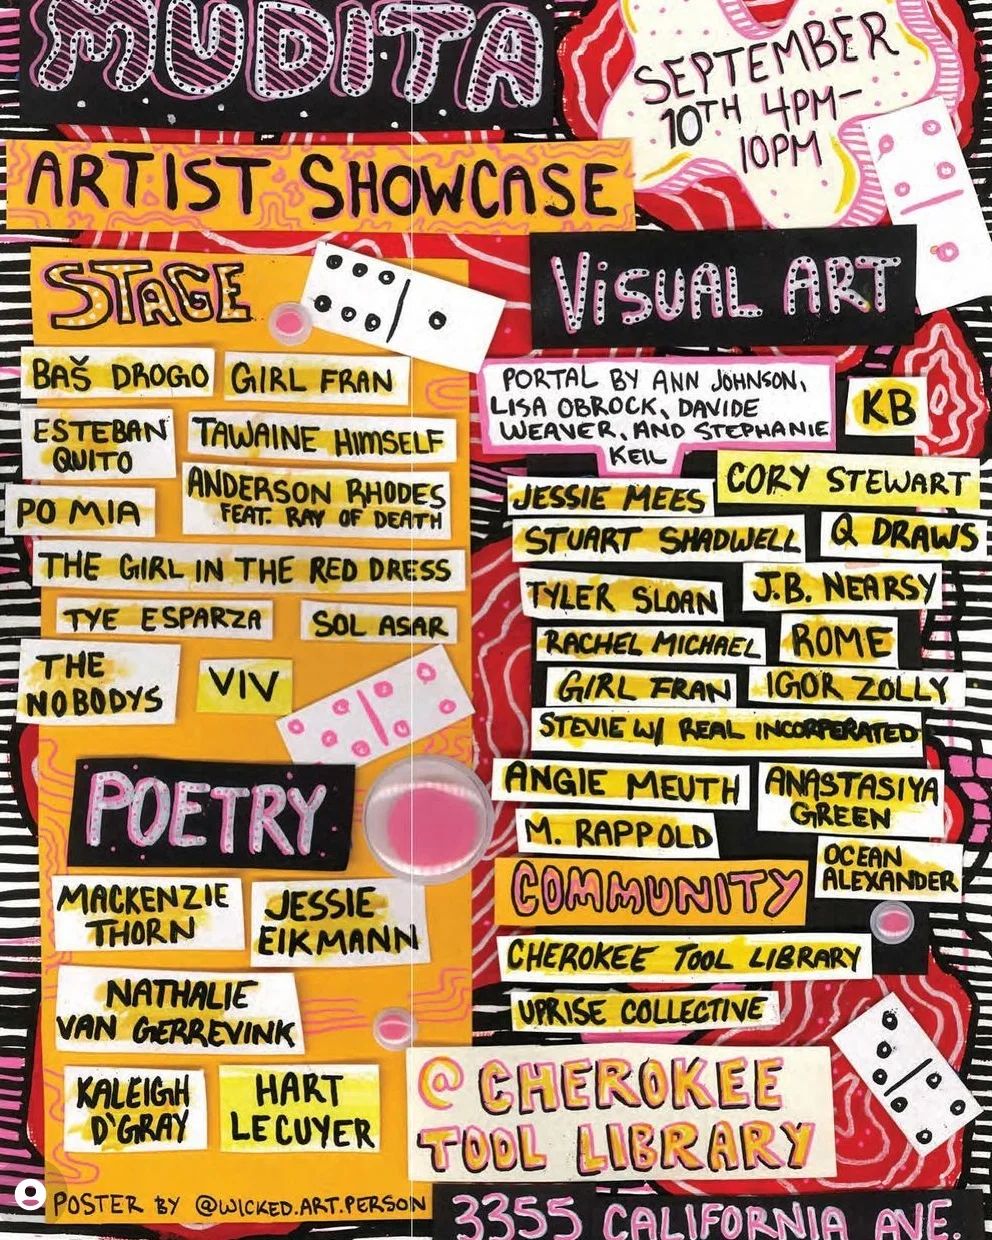 MUDITA
SEPTEMBER
10TH 4PM-
10PM
ARTIST SHOWCASE
STAGE
BAŠ DROGO
GIRL FRAN
ESTEBAN
QUITO
TAWAINE HIMSELF
PO MIA
ANDERSON RHODES
FEAT. RAY OF DEATH
THE GIRL IN THE RED DRESS
TYE ESPARZA
SOL ASAR
THE
NOBODYS
VIV
POETRY
MACKENZIE
THORN
JESSIE
EIKMANN
NATHALIE
VAN GERREVINK
KALEIGH
D'GRAY
HART
LECUYER
VISUAL ART
PORTAL BY ANN JOHNSON,
LISA OBROCK, DAVIDE
WEAVER, AND STEPHANIE
KEIL
KB
JESSIE MEES
CORY STEWART
STUART SHADWELL
Q DRAWS
TYLER SLOAN
J.B. NEARSY
RACHEL MICHAEL
ROME
GIRL FRAN
IGOR ZOLLY
STEVIE W/ REAL INCORPERATED
ANGIE MEUTH
ANASTASIYA
GREEN
M. RAPPOLD
OCEAN
ALEXANDER
COMMUNITY
CHEROKEE TOOL LIBRARY
UPRISE COLLECTIVE
@ CHEROKEE
TOOL LIBRARY
POSTER BY @WICKED.ART.PERSON
3355 CALIFORNIA AVE.